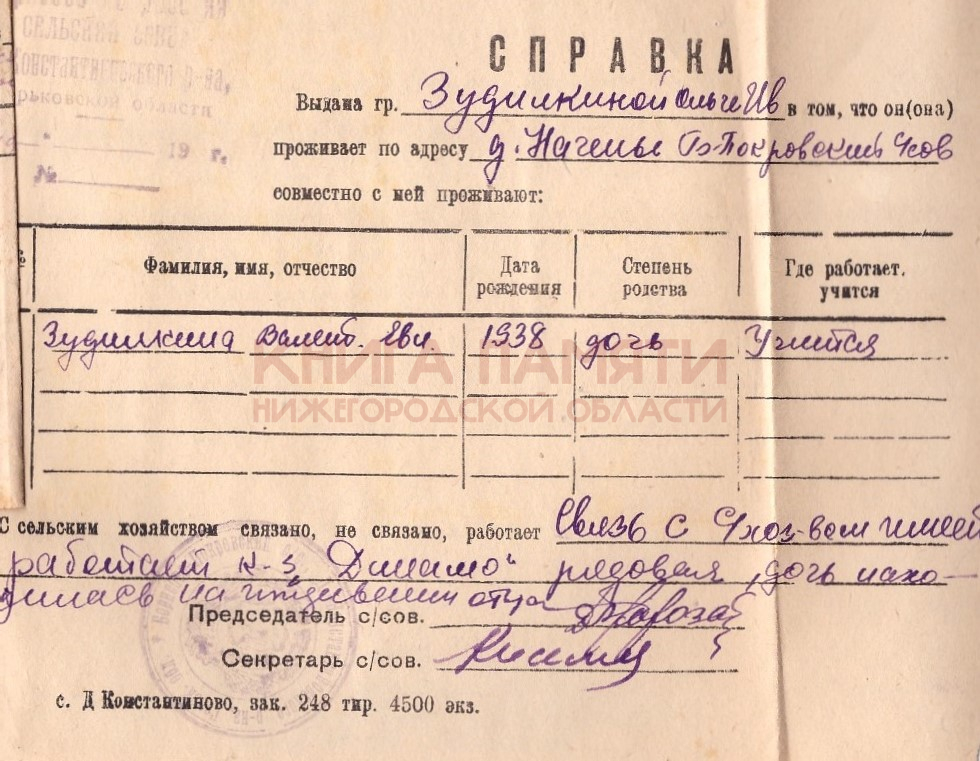 сельский
Константиновского р-на,
Горьковской области
19 г.
№
СПРАВКА
Выдана гр. Зудилкиной Ольге Ив в том, что он(она)
проживает по адресу д. Б-Покровский
совместно с ней проживают:
Фамилия, имя, отчество Дата рождения Степень родства Где работает. учится
Зудилкина Валент. 1938 дочь Учится
КНИГА ПАМЯТИ
НИЖЕГОРОДСКОЙ ОБЛАСТИ
С сельским хозяйством связано, не связано, работает Связь с имеет
работает к-з „Динамо" рядовая, дочь нахо-
дилась на иждивении отца
Председатель с/сов.
Секретарь с/сов.
с. Д Константиново, зак. 248 тир. 4500 экз.